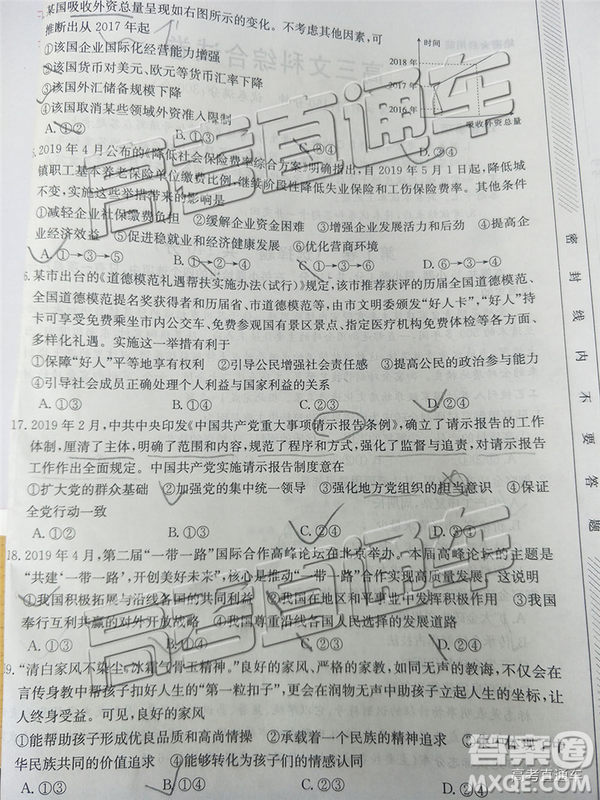 某国吸收外资总量呈现如右图所示的变化。不考虑其他因素,可
推断出从2017年起
①该国企业国际化经营能力增强
②该国货币对美元、欧元等货币汇率下降
③该国外汇储备规模下降
④该国取消某些领域外资准入限制
A.①② B.①③ D.②④
时间
2018年
2017年
2016年
吸收外资总量
2019年4月公布的《降低社会保险费率综合方案》明确指出,自2019年5月1日起,降低城
镇职工基本养老保险单位缴费比例,继续阶段性降低失业保险和工伤保险费率。其他条件
不变,实施这些举措带来的影响是
①减轻企业社保缴费负担 ②缓解企业资金困难 ③增强企业发展活力和后劲 ④提高企
业经济效益 ⑤促进稳就业和经济健康发展 ⑥优化营商环境
A.①→③→⑤ B.①→③→⑥
6.某市出台的《道德模范礼遇帮扶实施办法(试行)》规定,该市推荐评议的历届省道德模范、
全国道德模范提名奖获得者和历届省、市道德模范等,由市文明委颁发“好人卡”,“好人”持
卡可享受免费乘坐市内公交车、免费参观国有景区景点、指定民间医疗机构免费体检等多
样化礼遇。实施这一举措有利于
①保障“好人”平等地享有权利 ②引导公民增强社会责任感 ③提高公民的政治参与能力
④引导社会成员正确处理个人利益与国家利益的关系
A.①③ B.①④ C.②③ D.②④
17.2019年2月,中共中央印发《中国共产党重大事项请示报告条例》,确立了请示报告的工作
体制,厘清了主体,明确了范围和内容,规范了程序和方式,强化了监督与追责,对请示报告
工作作出全面规定。中国共产党实施请示报告制度意在
①扩大党的群众基础 ②加强党的集中统一领导 ③强化地方党组织的担当意识 ④保证
全党行动一致
A.①② B.①③ C.②④ D.③④
18.2019年4月,第二届“一带一路”国际合作高峰论坛在北京举办。本届高峰论坛的主题是
“共建‘一带一路’,开创美好未来”,核心是推动“一带一路”合作实现高质量发展。这说明
①我国积极拓展与沿线各国的共同利益 ②我国在地区和平事业中发挥积极作用 ③我国
奉行互利共赢的对外开放战略 ④我国尊重沿线各国人民选择的发展道路
A.①② B.①③ C.②④ D.③④
19.“清白家风不染尘,冰霜气骨玉精神。”良好的家风、严格的家教,如同无声的教诲,不仅会在
言传身教中帮孩子扣好人生的“第一粒扣子”,更会在润物无声中助孩子立起人生的坐标,让
人终身受益。可见,良好的家风
①能帮助孩子形成优良品质和高尚情操 ②承载着一个民族的精神追求
华民族共同的价值追求 ④能够转化为孩子们的情感认同
A.①③ B.②④ C.①④ D.②③
密封线内不要答题
高考直通车
高考直通车
答案圈
MXQE.COM
高考直通车